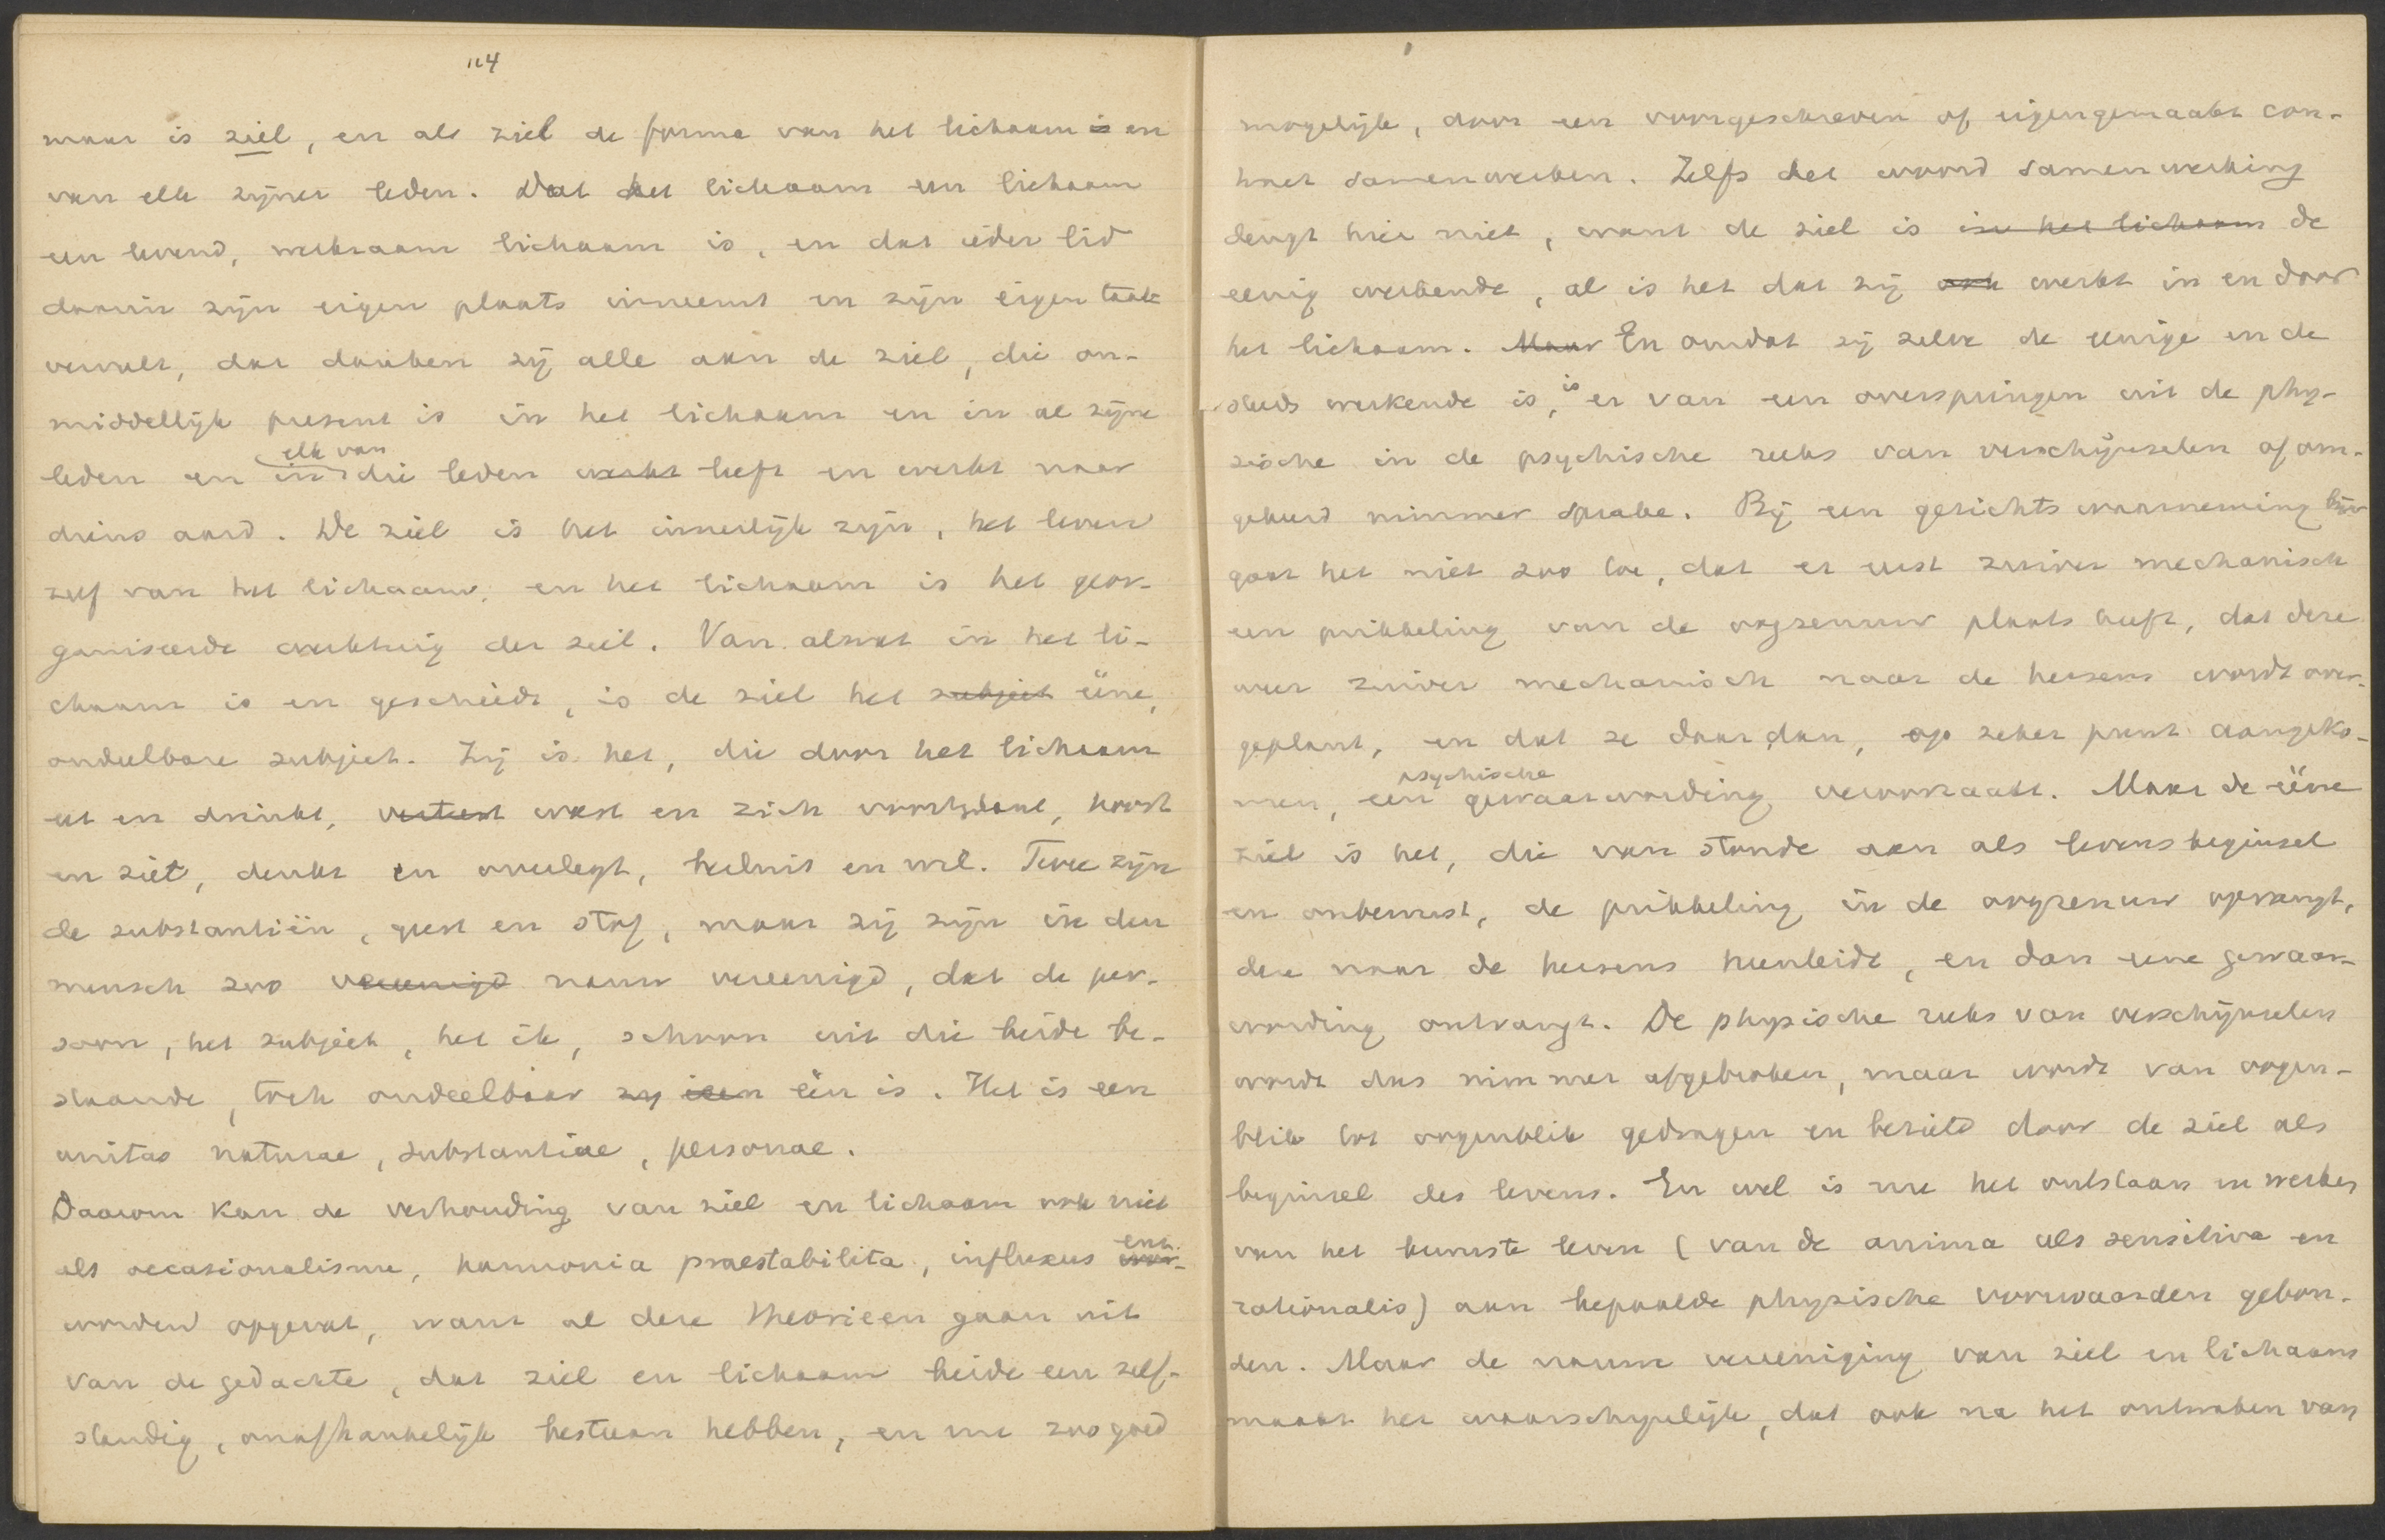 114
maar is ziel, en als ziel de forma van het lichaam is en
van elk zijner leden. Dat het lichaam een lichaam
een levend, werkzaam lichaam is, en dat ieder lid
daarin zijn eigen plaats inneemt en zijn eigen taak
vervult, dat danken zij alle aan de ziel, die on-
middellijk present is in het lichaam en in al zijne
elk van
leden en in die leden werkt leeft en werkt naar
diens aard. De ziel is het innerlijk zijn, het leven
zelf van het lichaam, en het lichaam is het geor-
ganiseerde werktuig der ziel. Van alwat in het li-
chaam is en geschiedt, is de ziel het subject ééne,
ondeelbare subject. Zij is het, die door het lichaam
eet en drinkt, verteert wast en zich voortplant, hoort
en ziet, denkt en overlegt, besluit en wil. Twee zijn
de substantiën, geest en stof, maar zij zijn in den
mensch zoo vereenigd nauw vereenigd, dat de per-
soon, het subject, het ik, schoon uit die beide be-
staande, toch ondeelbaar zij een één is. Het is een
unitas naturae, substantiae, personae.
Daarom kan de verhouding van ziel en lichaam ook niet
enz.
als occasionalisme, harmonia praestabilita, influxus wor-
worden opgevat, want al deze theorieen gaan uit
van de gedachte, dat ziel en lichaam beide een zelf-
standig, onafhankelijk bestaan hebben, en nu zoo goed
mogelijk, door een voorgeschreven of eigengemaakt con-
tract samenwerken. Zelfs het woord samenwerking
deugt hier niet, want de ziel is in het lichaam de
eenig werkende, al is het dat zij ook werkt in en door
het lichaam. Maar En omdat zij zelve de eenige en de
is
steeds werkende is, er van een overspringen uit de phy-
sische in de psychische reeks van verschijnselen of om-
gekeerd nimmer sprake. Bij een gezichtswaarneming bijv
gaat het niet zoo toe, dat er eerst zuiver mechanisch
een prikkeling van de oogzenuw plaats heeft, dat deze
weer zuiver mechanisch naar de hersens wordt over-
geplant, en dat ze daar dan, op zeker punt aangeko-
psychische
men, een gewaarwording veroorzaakt. Maar de ééne
ziel is het, die van stonde aan als levensbeginsel
en onbewust, de prikkeling in de oogzenuw opvangt,
deze naar de hersens heenleidt, en dan eene gewaar-
wording ontvangt. De physische reeks van verschijnselen
wordt dus nimmer afgebroken, maar wordt van oogen-
blik tot oogenblik gedragen en bezield door de ziel als
beginsel des levens. En wel is nu het ontstaan en werken
van het bewuste leven (van de anima als sensitiva en
rationalis) aan bepaalde physische voorwaarden gebon-
den. Maar de nauwe vereeniging van ziel en lichaam
maakt het waarschijnlijk, dat ook na het ontwaken van